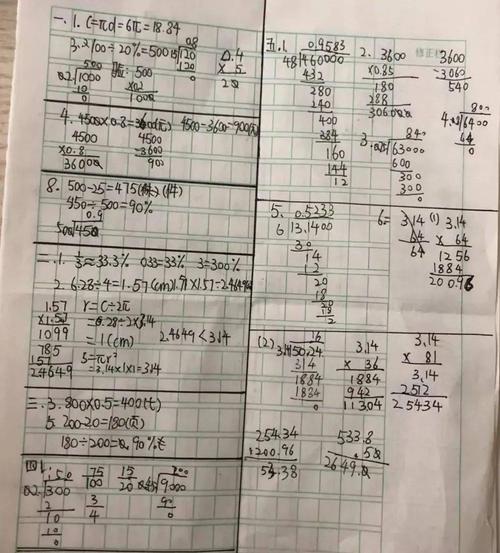 一.1. C=πd=6π=18.84
3. 100÷20%=500
0.8
15√120
120
0
500
0.2√1000
10
0
验: 500
×0.2
1000
0.4
× 5
20
4. 4500×0.8=3600(元) 4500-3600=900(元)
4500
×0.8
36000
4500
-3600
900
8. 500-25=475(件)
450÷500=90%
0.9
500√450
二.1. 1/3≈33.3% 0.33=33% 3=300%
2. 6.28÷4=1.57(cm) 1.57×1.57=2.4649
1.57
×1.57
1099
785
157
24649
r=C÷2π
=6.28÷2×3.14
=1(cm)
S=πr²
=3.14×1×1=3.14
2.4649<3.14
三.3. 800×0.5=400(元)
5. 200-20=180(页)
180÷200=0.90%
四1.
150
0.2√300
2
10
10
0
75/100
3/4
15/20
200
0.45√9000
90
0
五.1.
0.9583
48√460000
432
280
240
400
384
160
144
12
2. 3600
×0.85
180
288
306000
3600
-3060
540
800
√6400
64
0
3.
840
√63000
600
300
300
0
5.
0.5233
6√3.1400
30
14
12
20
18
20
18
2
6=
3.14
64
64
(1) 3.14
× 64
1256
1884
20096
(2)
16
3.14√50.24
314
1884
1884
0
3.14
× 36
1884
942
11304
3.14
× 81
3.14
2512
25434
254.34
-200.96
53.38
533.8
2649.0